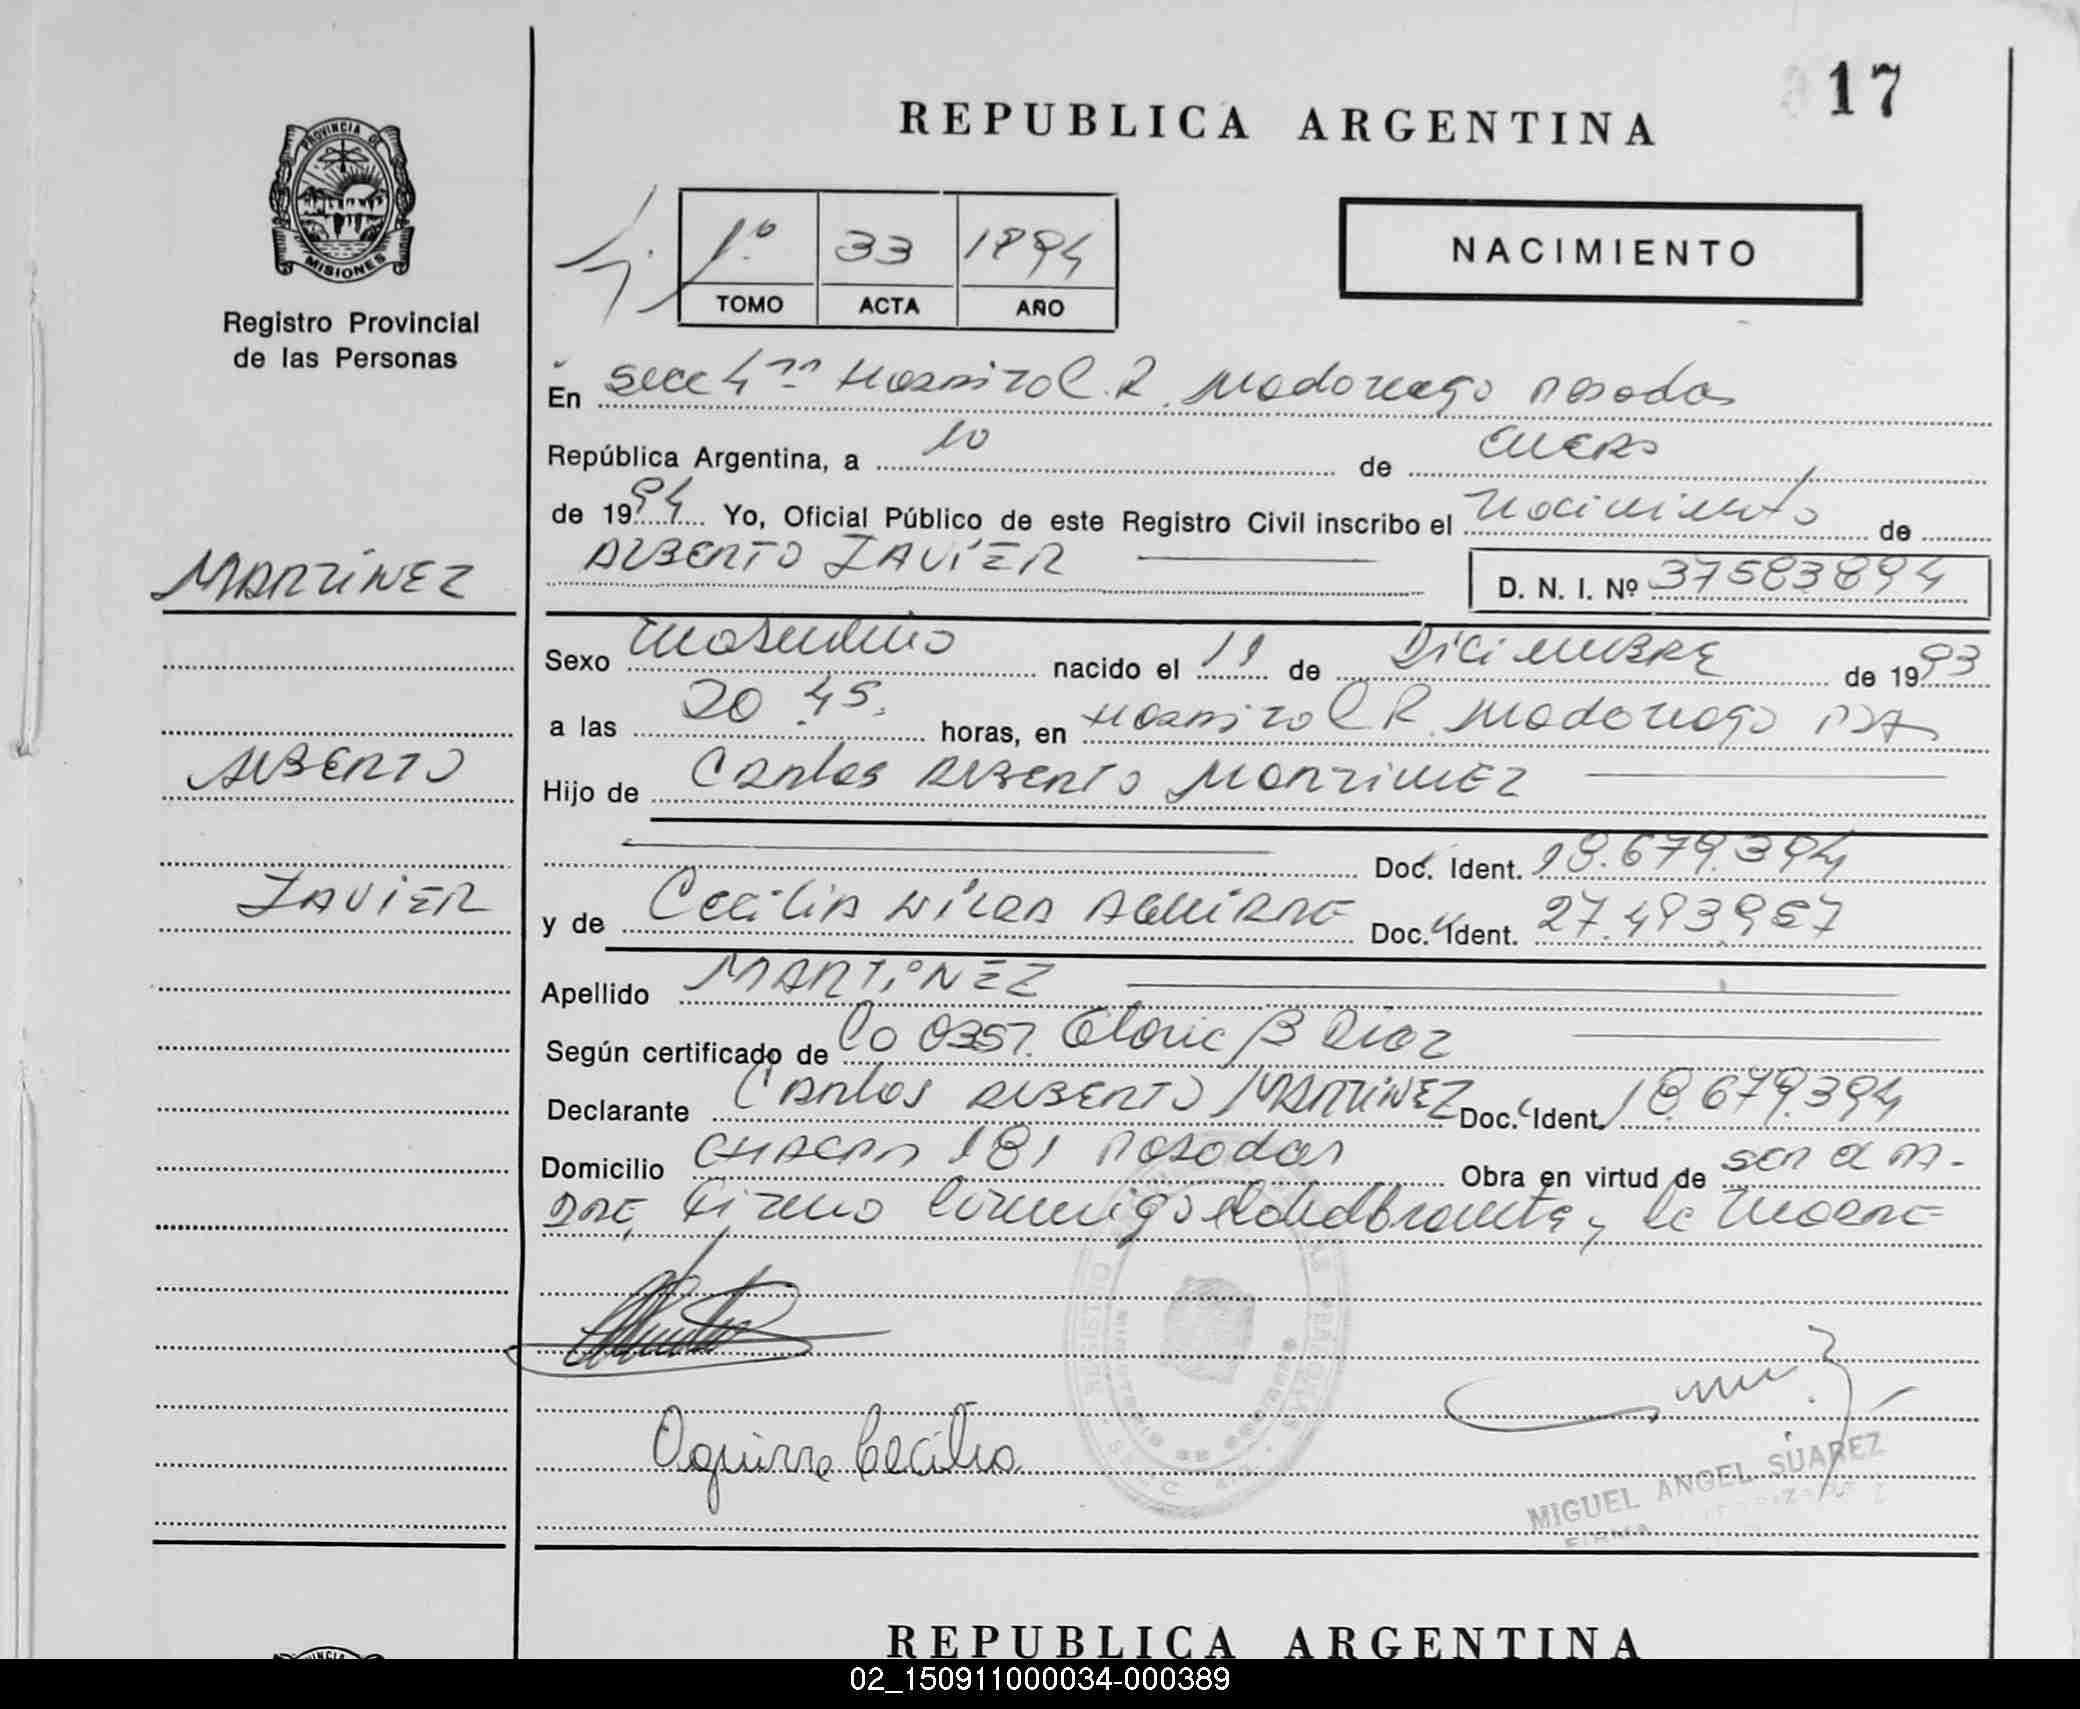 17
REPUBLICA ARGENTINA
PROVINCIA DE
MISIONES
Registro Provincial
de las Personas
1º 33 1994
TOMO ACTA AÑO
NACIMIENTO
En Secc 4ta Hospital R. Madariaga Posadas
República Argentina, a 10 de enero
de 1994 Yo, Oficial Público de este Registro Civil inscribo el nacimiento de
ALBERTO JAVIER
D. N. I. Nº 37583894
MARTINEZ
ALBERTO
JAVIER
Sexo masculino nacido el 19 de Diciembre de 1993
a las 20.45. horas, en Hospital R. Madariaga PDA
Hijo de Carlos Alberto Martinez
Doc. Ident. 18.679.394
y de Cecilia Aguirre Doc. Ident. 27.493.967
Apellido MARTINEZ
Según certificado de 0357. B Diaz
Declarante Carlos Alberto MARTINEZ Doc. Ident. 18.679.394
Domicilio CHACRA 181 Posadas Obra en virtud de ser el pa-
dre, firma conmigo el declarante y la madre
Aguirre Cecilia
MIGUEL ANGEL SUAREZ
FIRMA
REPUBLICA ARGENTINA
02_150911000034-000389